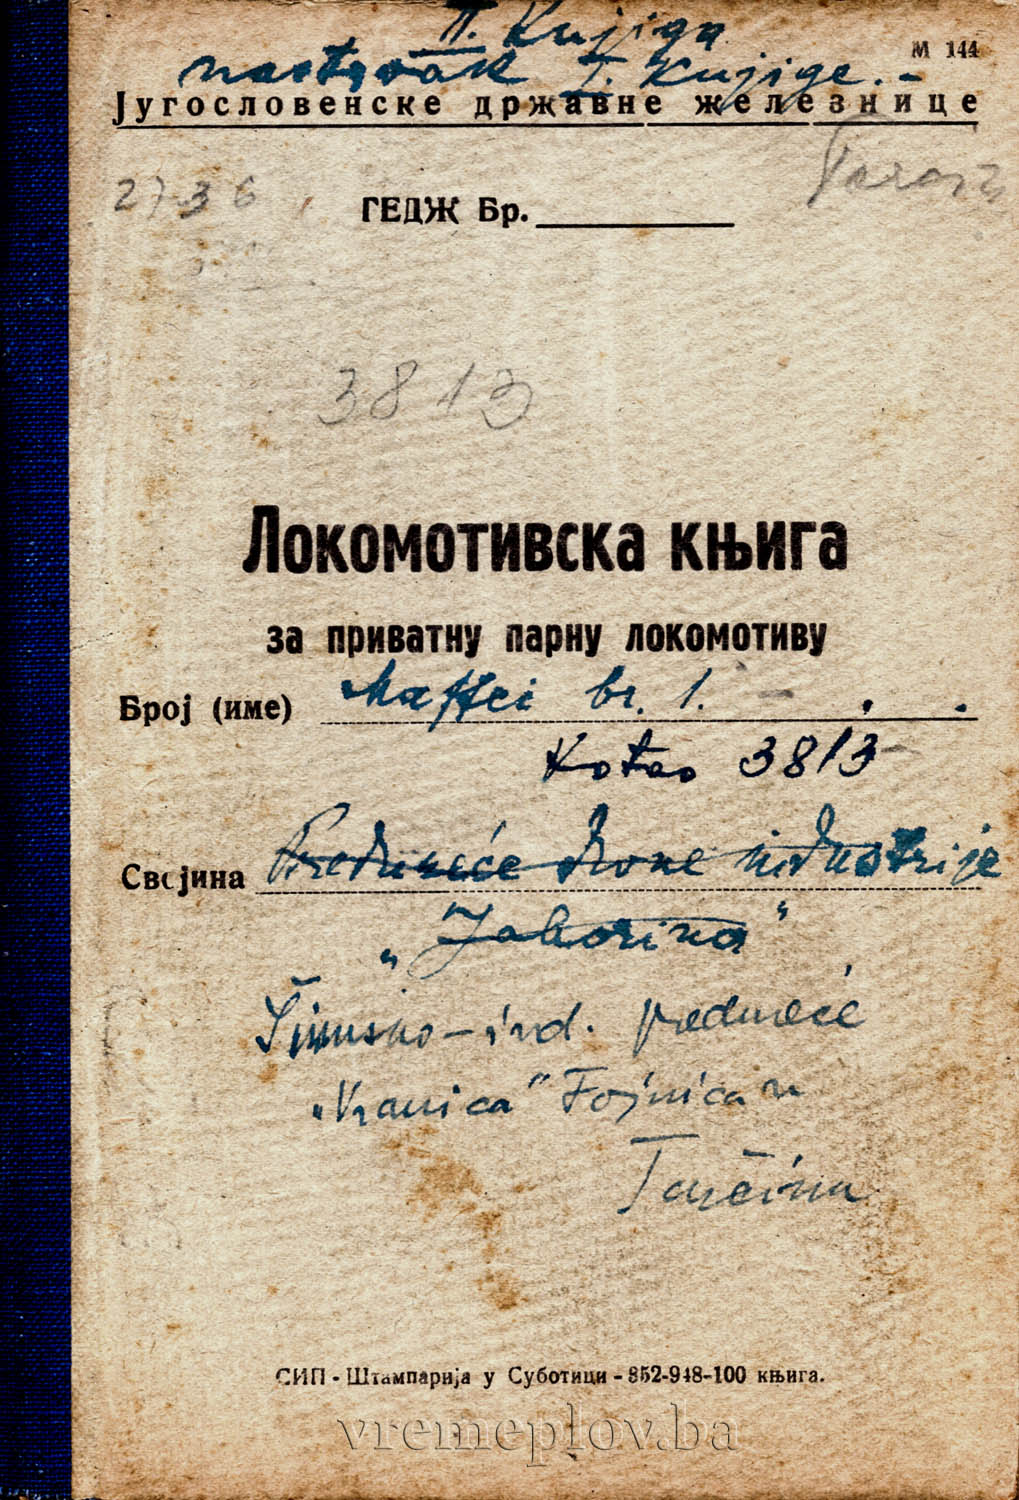 II. Knjiga
nastavak I. Knjige.-
М 144
Југословенске државне железнице
2736
ГЕДЖ Бр.
3813
Локомотивска књига
за приватну парну локомотиву
Број (име) Maffei br. 1. -
Kotao 3813
Својина Preduzeće drvne industrije
„Jahorina"
Šumsko-ind. preduzeće
„Vranica" Fojnica u
Tarčinu
СИП - Штампарија у Суботици - 852-948-100 књига.
vremeplov.ba